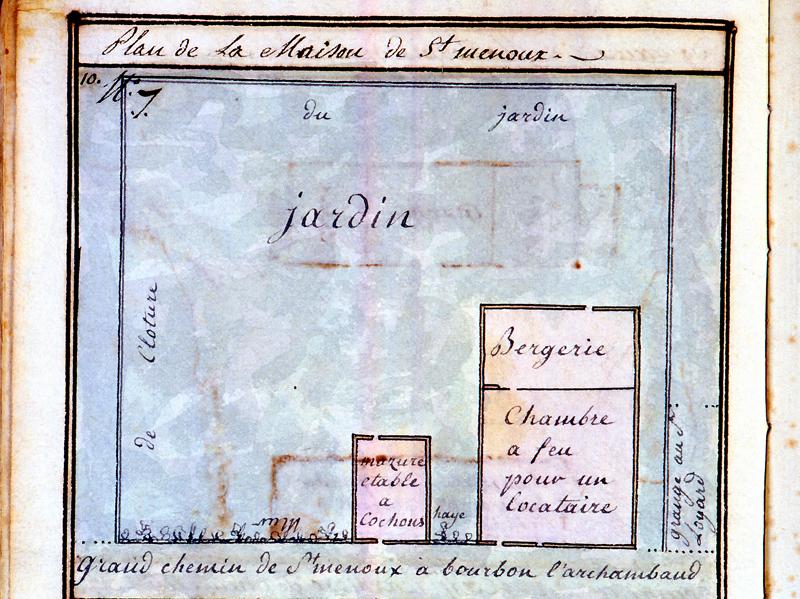 Plan de La Maison de St menoux.
10.
N.° 7.
du jardin
jardin
de Cloture
Bergerie
Chambre
a feu
pour un
Locataire
mazure
etable
a
Cochons
haye
grange au Sr.
Loyard
grand chemin de St menoux a bourbon l'archambaud